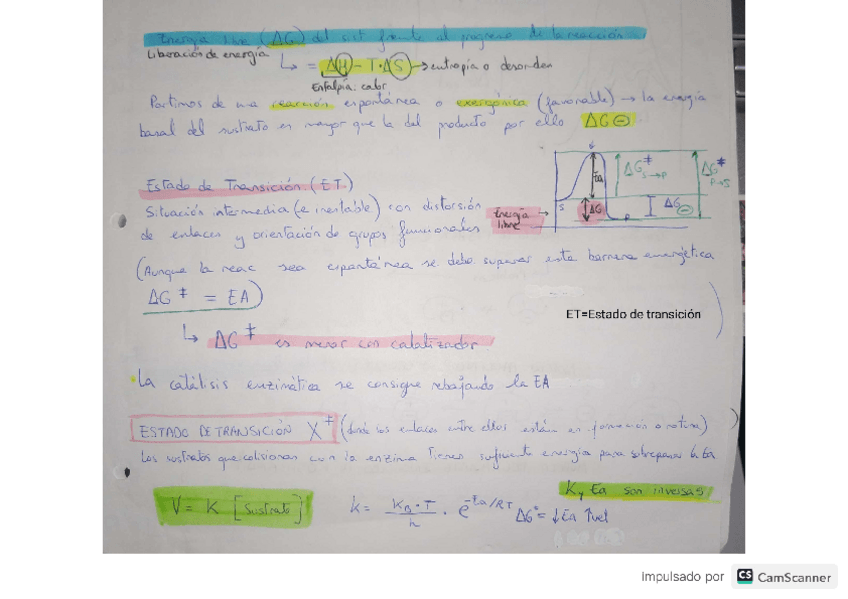 Energía libre (ΔG) del sist frente al progreso de la reacción
Liberación de energía
↳ = ΔH - T·ΔS → entropía o desorden
Entalpía: calor
Partimos de una reacción espontánea o exergónica (favorable) → la energía
basal del sustrato es mayor que la del producto por ello ΔG ⊖
Estado de Transición (ET)
Situación intermedia (e inestable) con distorsión
de enlaces y orientación de grupos funcionales
Energía libre →
S
Ea
ΔG
P
ΔG‡ S→P
ΔG ⊖
ΔG‡ P→S
(Aunque la reac sea espontánea se debe superar esta barrera energética
ΔG‡ = EA)
ET=Estado de transición
↳ ΔG‡ es menor con catalizador
La catálisis enzimática se consigue rebajando la EA
ESTADO DE TRANSICIÓN X‡ (donde los enlaces entre ellos están en formación o rotura)
Los sustratos que colisionan con la enzima tienen suficiente energía para sobrepasar la Ea
K y Ea son inversas
V = K [Sustrato]
k = KB · T / h · e^-Ea/RT ΔG°= ↓Ea ↑vel
Impulsado por CS CamScanner